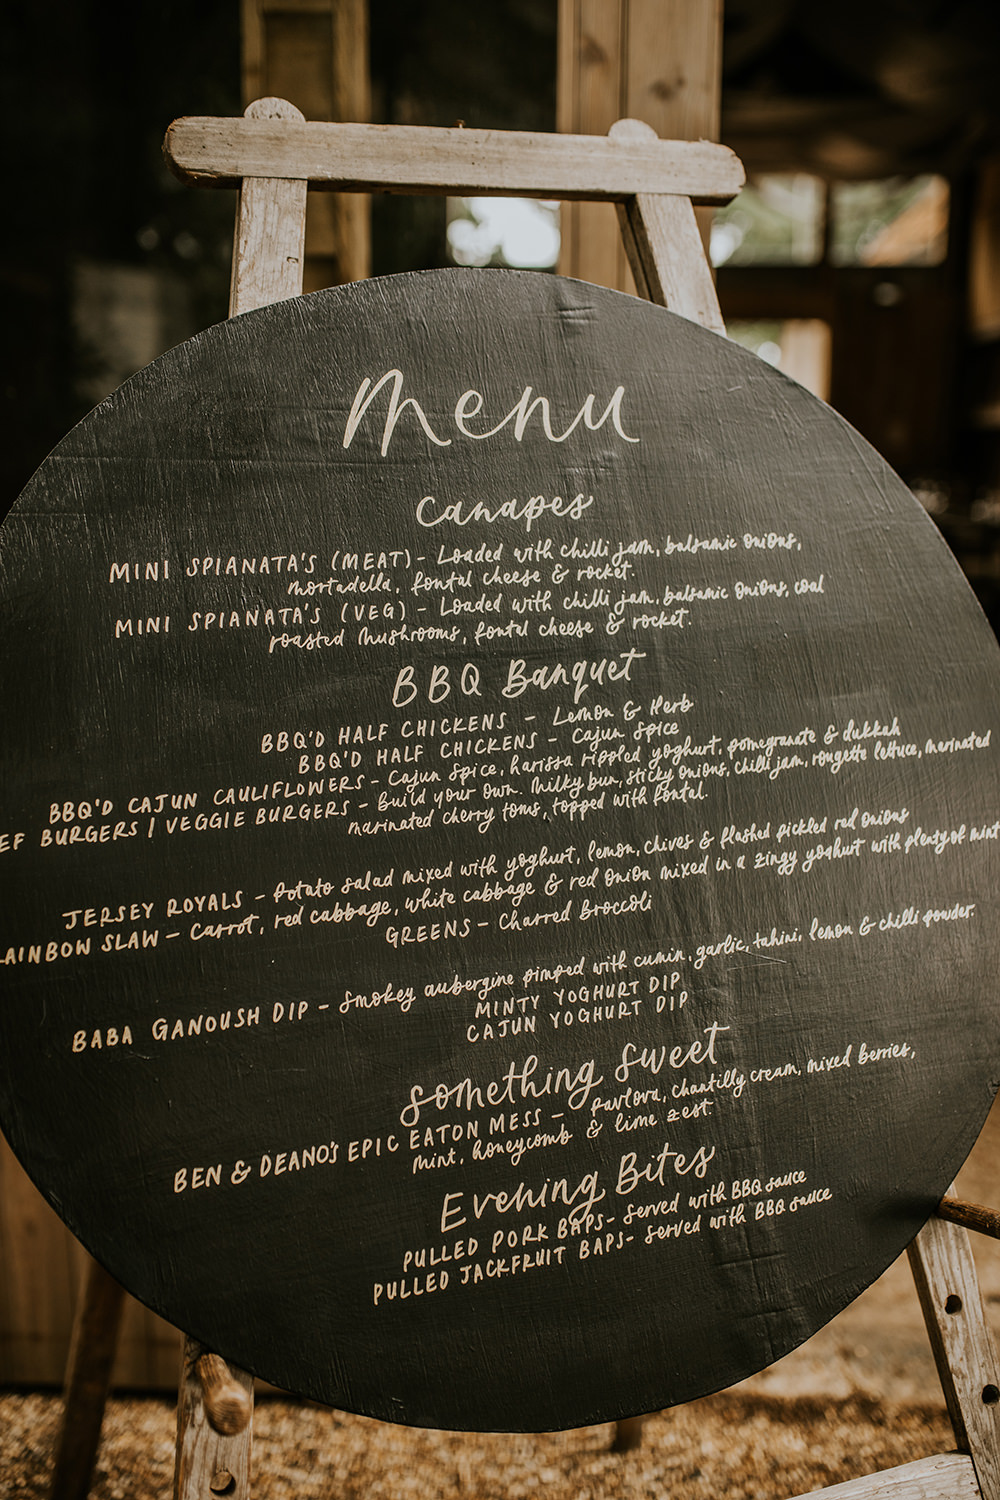 Menu
Canapes
MINI SPIANATA'S (MEAT) - Loaded with chilli jam, balsamic onions,
mortadella, fontal cheese & rocket.
MINI SPIANATA'S (VEG) - Loaded with chilli jam, balsamic onions, coal
roasted mushrooms, fontal cheese & rocket.
BBQ Banquet
BBQ'D HALF CHICKENS - Lemon & Herb
BBQ'D HALF CHICKENS - Cajun Spice
BBQ'D CAJUN CAULIFLOWERS - Cajun Spice, harissa rippled yoghurt, pomegranate & dukkah
EF BURGERS / VEGGIE BURGERS - Build your own. Milky bun, sticky onions, chilli jam, rougette lettuce, marinated
marinated cherry toms, topped with fontal.
JERSEY ROYALS - Potato salad mixed with yoghurt, lemon, chives & flashed pickled red onions
AINBOW SLAW - Carrot, red cabbage, white cabbage & red onion mixed in a zingy yoghurt with plenty of mint
GREENS - Charred Broccoli
BABA GANOUSH DIP - Smokey aubergine pimped with cumin, garlic, tahini, lemon & chilli powder.
MINTY YOGHURT DIP
CAJUN YOGHURT DIP
Something Sweet
BEN & DEANO'S EPIC EATON MESS - Pavlova, chantilly cream, mixed berries,
mint, honeycomb & lime zest.
Evening Bites
PULLED PORK BAPS - Served with BBQ sauce
PULLED JACKFRUIT BAPS - Served with BBQ sauce